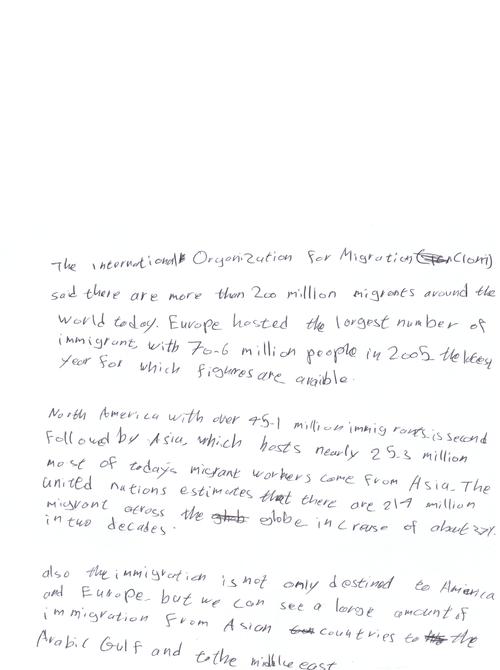 The international Organization for Migration (IOM)
sad there are more than 200 million migrants around the
world today. Europe hosted the largest number of
immigrant, with 70.6 million people in 2005 the
year for which figures are
North America with over 45.1 million immigrants is second
followed by Asia, which hosts nearly 25.3 million
most of today's migrant workers come from Asia. The
united nations estimates that there are 214 million
migrant across the globe increase of about 37%
in two decades.
also the immigration is not only destined to America
and Europe. but we can see a large amount of
immigration from Asian countries to the
Arabic Gulf and to the middle east